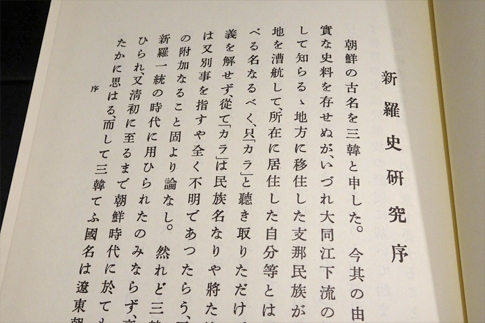 新羅史研究序
朝鮮の古名を三韓と申した。今其の由
實な史料を存せぬが、いづれ大同江下流の
して知らるゝ地方に移住した支那民族が
地を漕航して、所在に居住した自分等とは
べる名なるべく、只「カラ」と聽き取りただけ
義を解せず、從て「カラ」は民族名なりや將た
は又別事を指すや全く不明であつたらう、
の附加なること固より論なし。然れど三
新羅一統の時代に用ひられたのみならず、
ひられ、又淸初に至るまで朝鮮時代に於ても
たかに思はる、而して三韓てふ國名は遼東
序